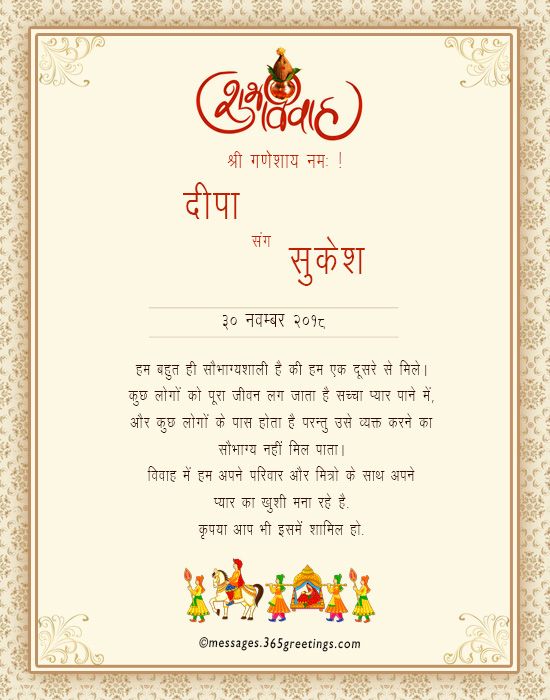 शुभ विवाह
श्री गणेशाय नमः !
दीपा
संग
सुकेश
३० नवम्बर २०१८
हम बहुत ही सौभाग्यशाली है की हम एक दूसरे से मिले।
कुछ लोगों को पूरा जीवन लग जाता है सच्चा प्यार पाने में,
और कुछ लोगों के पास होता है परन्तु उसे व्यक्त करने का
सौभाग्य नहीं मिल पाता।
विवाह में हम अपने परिवार और मित्रो के साथ अपने
प्यार का खुशी मना रहे है.
कृपया आप भी इसमें शामिल हो.
©messages.365greetings.com